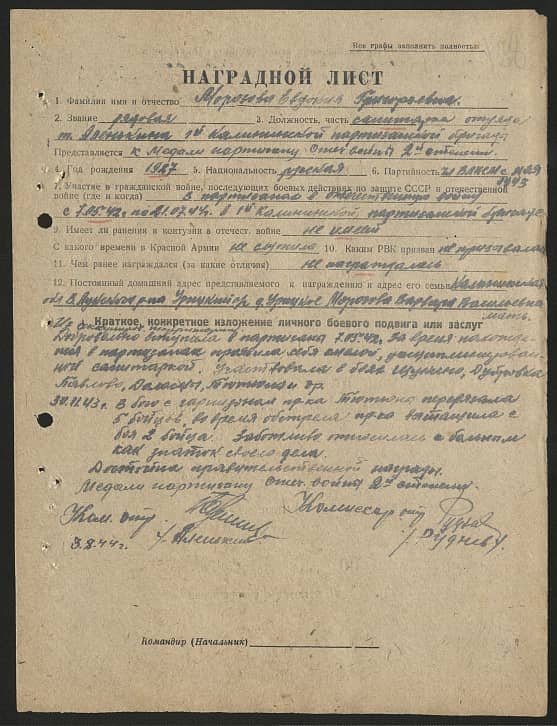 Все графы заполнить полностью
НАГРАДНОЙ ЛИСТ
1. Фамилия имя и отчество Морозова Евдокия Григорьевна.
2. Звание рядовая 3. Должность, часть санитарка отряда
1й Калининской партизанской бригады
Представляется к медали партизану Отеч. войны 2й степени.
4. Год рождения 1927 5. Национальность русская 6. Партийность чл ВЛКСМ с мая
1943
7. Участие в гражданской войне, последующих боевых действиях по защите СССР и отечественной
войне (где и когда) В партизанах в отечественную войну
с 7.05.42 по 21.07.44г. в 1й Калининской партизанской бригаде
9. Имеет ли ранения и контузии в отечест. войне не имеет
С какого времени в Красной Армии не служила 10. Каким РВК призван не призывалась
11. Чем ранее награждался (за какие отличия) не награждалась
12. Постоянный домашний адрес представляемого к награждению и адрес его семьи Калининская
обл. д. Урицкое Морозова Варвара Васильевна
мать.
Краткое, конкретное изложение личного боевого подвига или заслуг
Добровольно вступила в партизаны 7.05.42г. За время нахожде-
ния в партизанах проявила себя смелой, дисциплинирован-
ной санитаркой. Участвовала в боях Щукино, Дубровка
Павлово, и др.
30.11.43г. В бою с гарнизоном пр-ка перевязала
5 бойцов, во время обстрела пр-ка вытащила с
боя 2 бойца. Заботливо относилась к больным
как знаток своего дела.
Достойна правительственной награды.
Медали партизану Отеч. войны 2й степени.
Ком. отр. Комиссар отр.
3.8.44г. /Руднев/
Командир (Начальник)